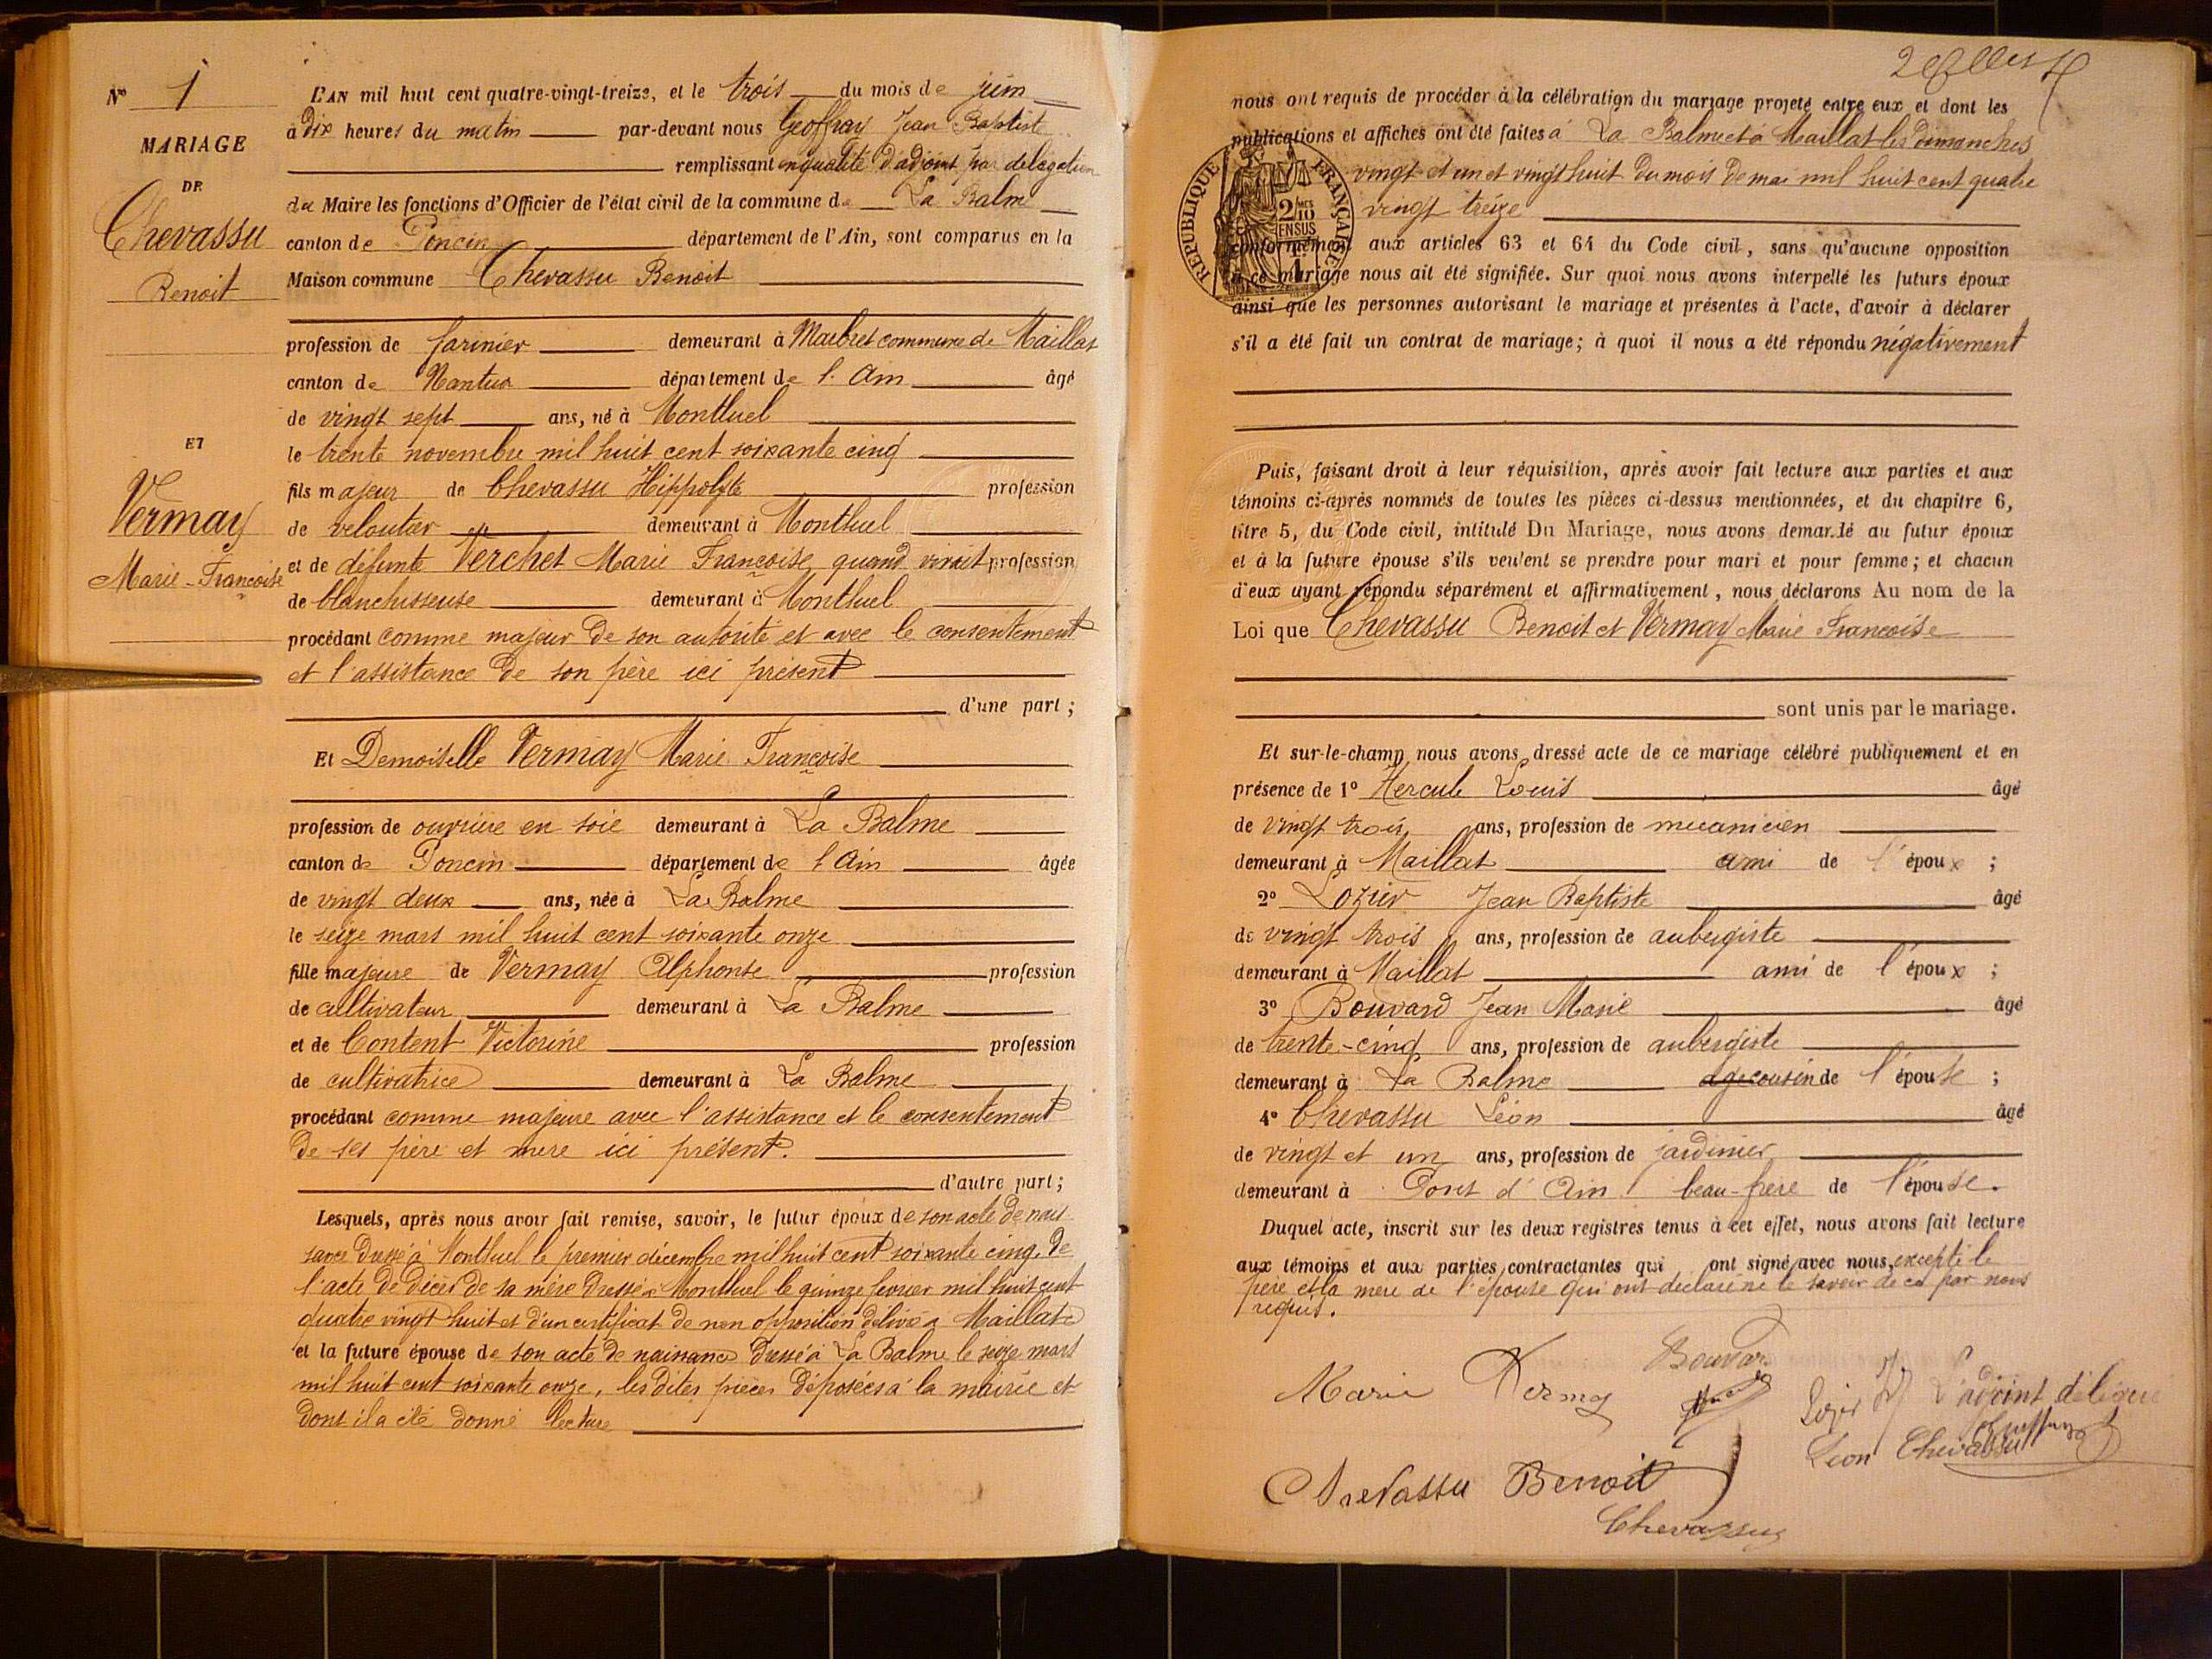 N° 1
MARIAGE
DE
Chevassu
Benoit
ET
Vermay
Marie-Françoise
L'AN mil huit cent quatre-vingt-treize, et le trois du mois de juin
à dix heures du matin par-devant nous Geoffray Jean Baptiste
remplissant en qualité d'adjoint par délégation
du Maire les fonctions d'Officier de l'état civil de la commune de La Balme
canton de Poncin département de l'Ain, sont comparus en la
Maison commune Chevassu Benoit
profession de farinier demeurant à Marbret commune de Maillat
canton de Nantua département de l'Ain âgé
de vingt sept ans, né à Montluel
le trente novembre mil huit cent soixante cinq
fils majeur de Chevassu Hippolyte profession
de veloutier demeurant à Montluel
et de défunte Verchet Marie Françoise, quand vivait profession
de blanchisseuse demeurant à Montluel
procédant comme majeur de son autorité et avec le consentement
et l'assistance de son père ici présent
d'une part ;
Et Demoiselle Vermay Marie Françoise
profession de ouvrière en soie demeurant à La Balme
canton de Poncin département de l'Ain âgée
de vingt deux ans, née à La Balme
le seize mars mil huit cent soixante onze
fille majeure de Vermay Alphonse profession
de cultivateur demeurant à La Balme
et de Content Victorine profession
de cultivatrice demeurant à La Balme
procédant comme majeure avec l'assistance et le consentement
de ses père et mère ici présent.
d'autre part ;
Lesquels, après nous avoir fait remise, savoir, le futur époux de son acte de nais
sance dressé à Montluel le premier décembre mil huit cent soixante cinq, de
l'acte de décès de sa mère dressé à Montluel le quinze fevrier mil huit cent
quatre vingt huit et d'un certificat de non opposition délivré à Maillat
et la future épouse de son acte de naissance dressé à La Balme le seize mars
mil huit cent soixante onze, les dites pièces déposées à la mairie et
dont il a été donné lecture
nous ont requis de procéder à la célébration du mariage projeté entre eux et dont les
publications et affiches ont été faites à La Balme et à Maillat les dimanches
vingt et un et vingt huit du mois de mai mil huit cent quatre
vingt treize
RÉPUBLIQUE FRANÇAISE
2/10
EN SUS
conformément aux articles 63 et 64 du Code civil, sans qu'aucune opposition
à ce mariage nous ait été signifiée. Sur quoi nous avons interpellé les futurs époux
ainsi que les personnes autorisant le mariage et présentes à l'acte, d'avoir à déclarer
s'il a été fait un contrat de mariage ; à quoi il nous a été répondu négativement
Puis, faisant droit à leur réquisition, après avoir fait lecture aux parties et aux
témoins ci-après nommés de toutes les pièces ci-dessus mentionnées, et du chapitre 6,
titre 5, du Code civil, intitulé Du Mariage, nous avons demandé au futur époux
et à la future épouse s'ils veulent se prendre pour mari et pour femme ; et chacun
d'eux ayant répondu séparément et affirmativement, nous déclarons Au nom de la
Loi que Chevassu Benoit et Vermay Marie Françoise
sont unis par le mariage.
Et sur-le-champ nous avons dressé acte de ce mariage célébré publiquement et en
présence de 1° Hercule Louis âgé
de vingt trois ans, profession de mecanicien
demeurant à Maillat ami de l'époux ;
2° Lozier Jean Baptiste âgé
de vingt trois ans, profession de aubergiste
demeurant à Maillat ami de l'époux ;
3° Bouvard Jean Marie âgé
de trente-cinq ans, profession de aubergiste
demeurant à La Balme cousin de l'épouse ;
4° Chevassu Léon âgé
de vingt et un ans, profession de jardinier
demeurant à Pont d'Ain beau-frère de l'épouse.
Duquel acte, inscrit sur les deux registres tenus à cet effet, nous avons fait lecture
aux témoins et aux parties contractantes qui ont signé avec nous, excepté le
père et la mère de l'épouse qui ont déclaré ne le savoir de ce par nous
requis.
Marie Vermay Bouvard
Lozier L'adjoint délégué
Léon Chevassu
Chevassu Benoit
Chevassu